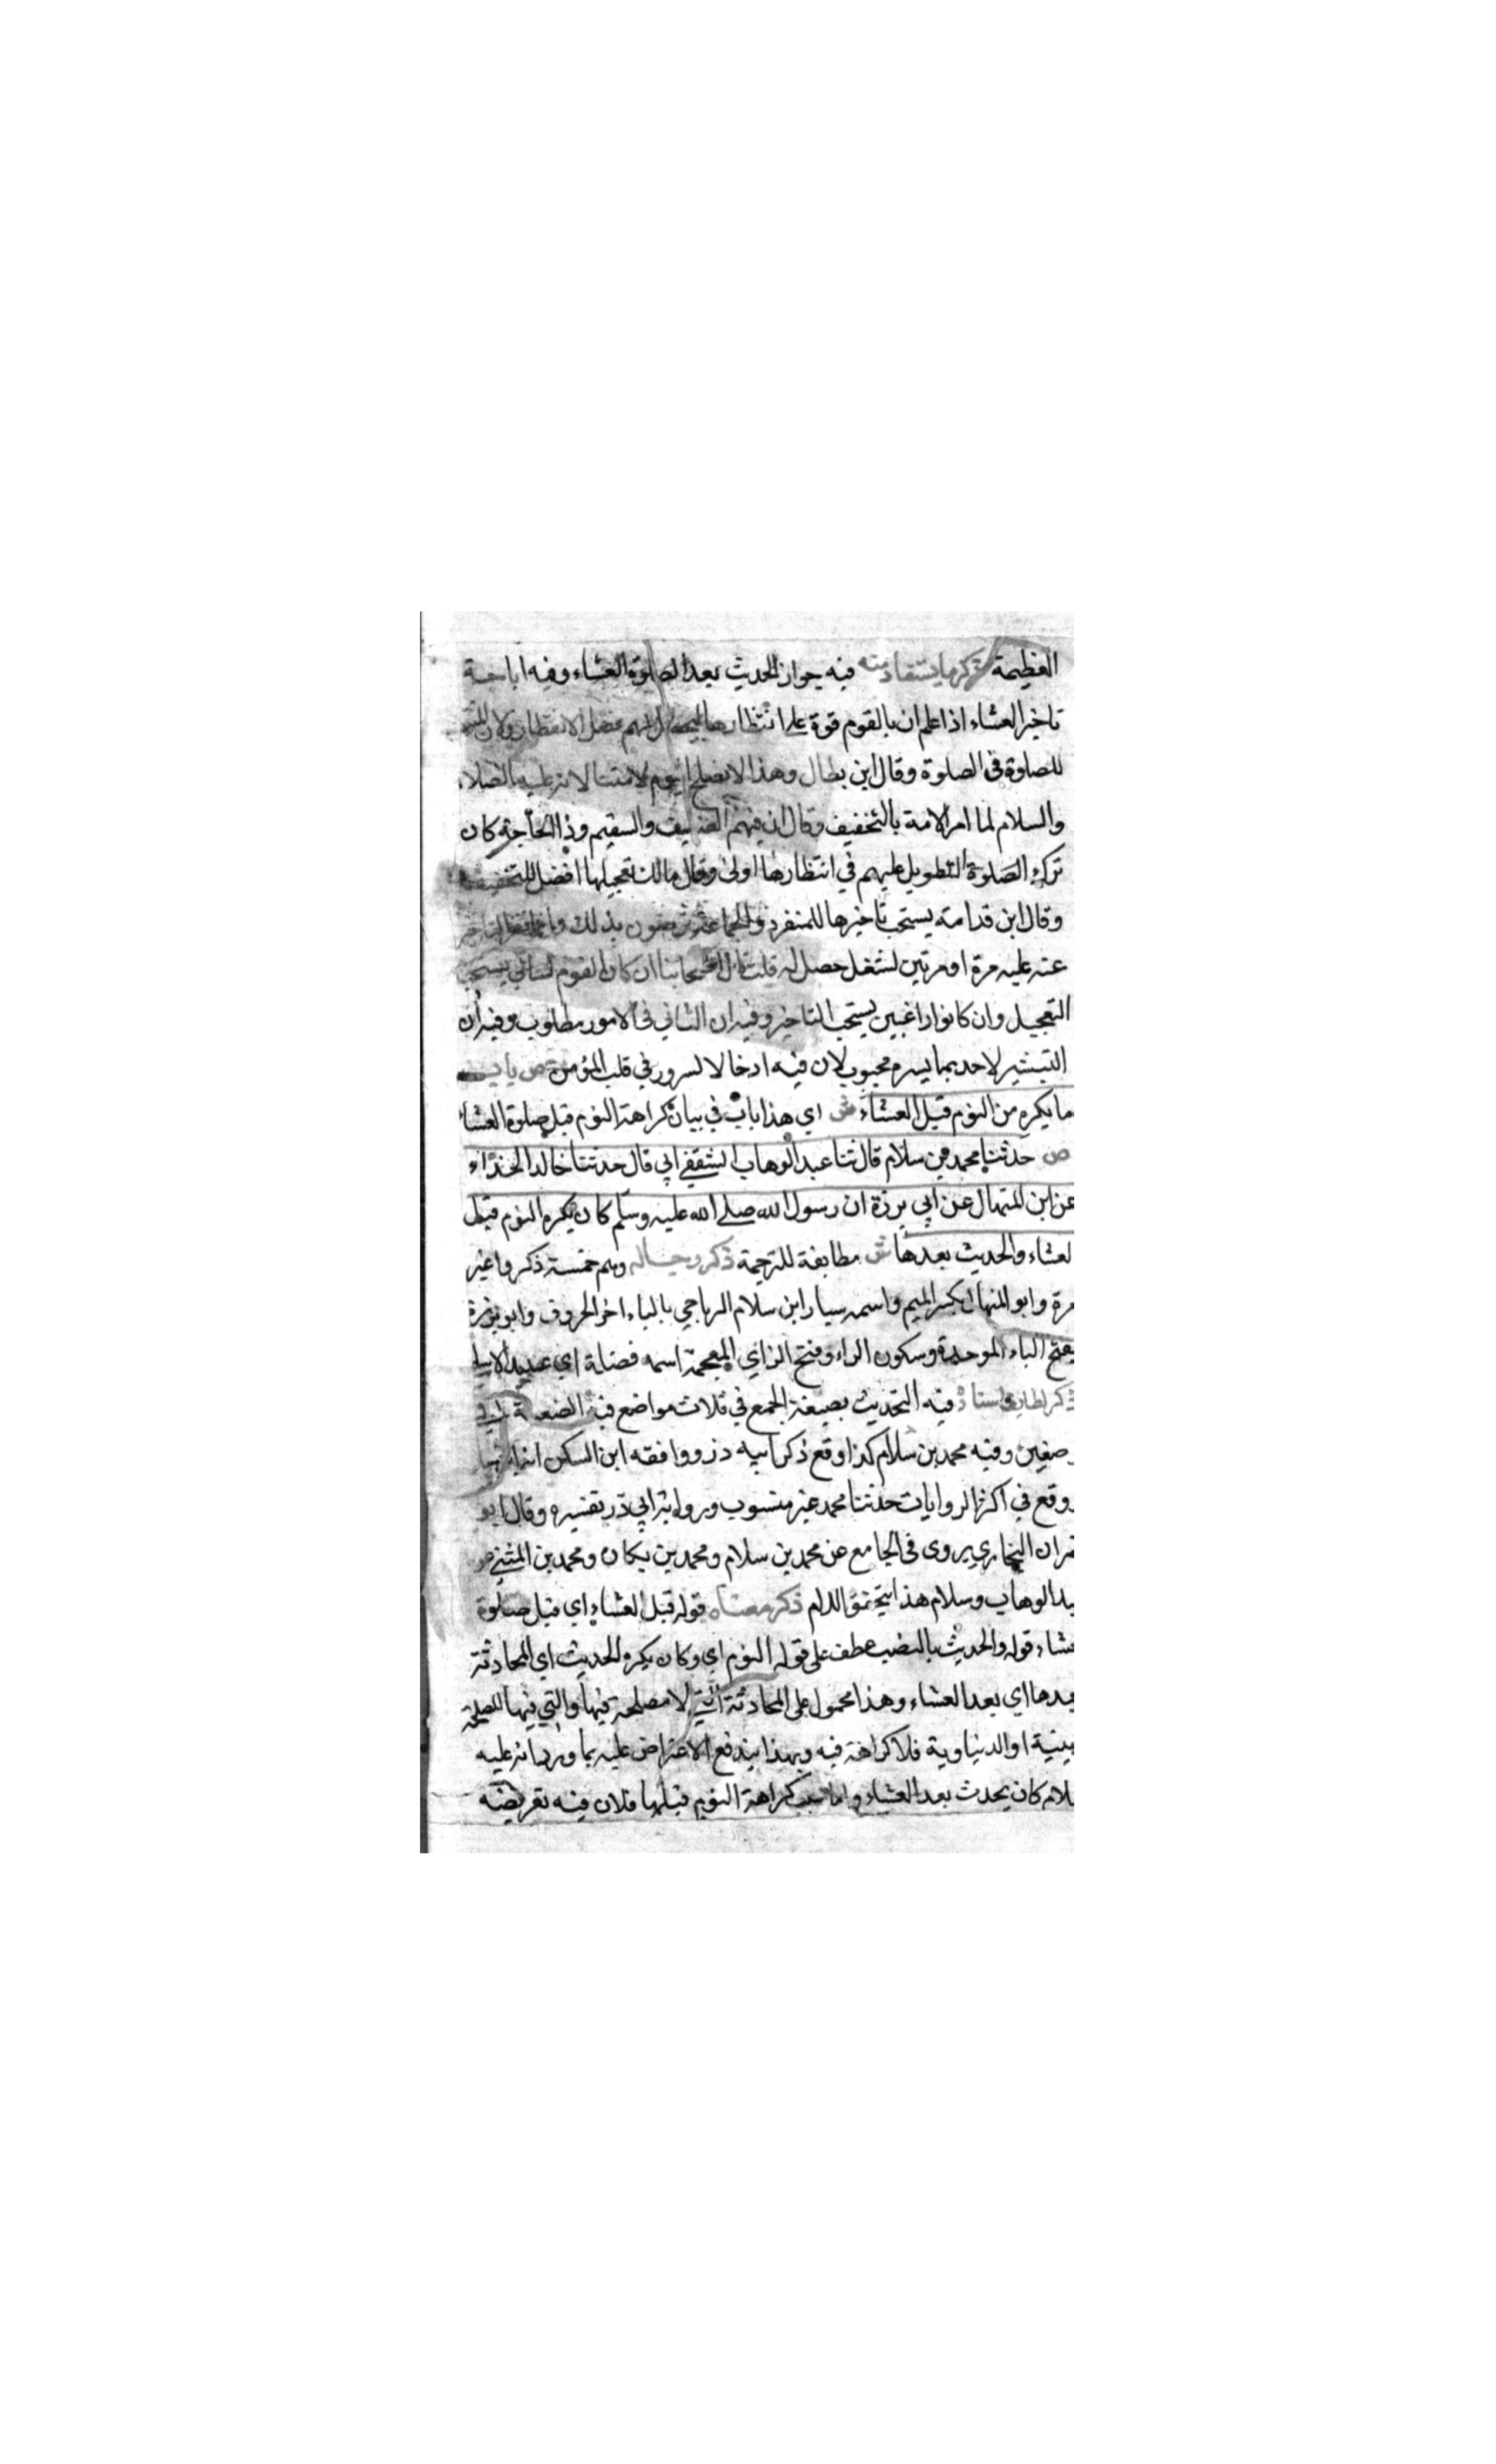 العظيمة ذكر ما يستفاد منه فيه جواز الحديث بعد الصلوة العشاء وفيه اباحة
تاخير العشاء اذا علم ان بالقوم قوة على انتظارها ليحصل لهم فضل الانتظار ولان المنتظر
للصلوة فى الصلوة وقال ابن بطال وهذا لا يصلح اليوم لامتنا لانه عليه الصلاة
والسلام لما امر الامة بالتخفيف وقال ان فيهم الضعيف والسقيم وذا الحاجة كان
ترك الصلوة التطويل عليهم في انتظارها اولى وقال مالك تعجيلها افضل للتخفيف
وقال ابن قدامة يستحب تاخيرها للمنفرد والجماعة يرضون بذلك وانما نقل التاخير
عنه عليه مرة او مرتين لشغل حصل له قلت قال اصحابنا ان كان القوم كسالى يستحب
التعجيل وان كانوا راغبين يستحب التاخير وفيه ان التاني فى الامور مطلوب وفيه ان
التبشير لاحد بما يسره محبوب لان فيه ادخالا لسرور في قلب المؤمن ص باب
ما يكره من النوم قبل العشاء ش اي هذا باب في بيان كراهة النوم قبل صلوة العشاء
ص حدثنا محمد بن سلام قال ثنا عبد الوهاب الثقفي قال حدثنا خالد الحذاء
عن ابن المنهال عن ابي برزة ان رسول الله صلى الله عليه وسلم كان يكره النوم قبل
لعشاء والحديث بعدها ش مطابقة للترجمة ذكر رجاله وهم خمسة ذكروا غير
مرة وابو المنهال بكسر الميم واسمه سيار ابن سلام الرياحي بالياء اخر الحروف وابو برزة
بفتح الباء الموحدة وسكون الراء وفتح الزاي المعجمة اسمه فضلة اي عبيد الاسلمي
ذكر لطايف اسناد فيه التحديث بصيغة الجمع في ثلاث مواضع فيه
وضعين وفيه محمد بن سلام كذا وقع ذكر ابيه ذر ووافقه ابن السكن
ووقع في اكثر الروايات حدثنا محمد غير منسوب ورواية ابي ذر تفسيره وقال ابو
نران البخاري يروى فى الجامع عن محمد بن سلام ومحمد بن بكان ومحمد بن المثنى
بد الوهاب وسلام هذا اللام ذكر معناه قوله قبل العشاء اي قبل صلوة
عشاء قوله والحديث بالنصب عطف على قوله النوم اي وكان يكره الحديث اي المحادثة
بعدها اي بعد العشاء وهذا محمول على المحادثة التي لا مصلحة فيها والتي فيها المصلحة
ينية او الدنياوية فلا كراهة فيه وبهذا يندفع الاعتراض عليه بما ورد انه عليه
سلام كان يحدث بعد العشاء واما سبب كراهة النوم قبلها فلان فيه تعريضه